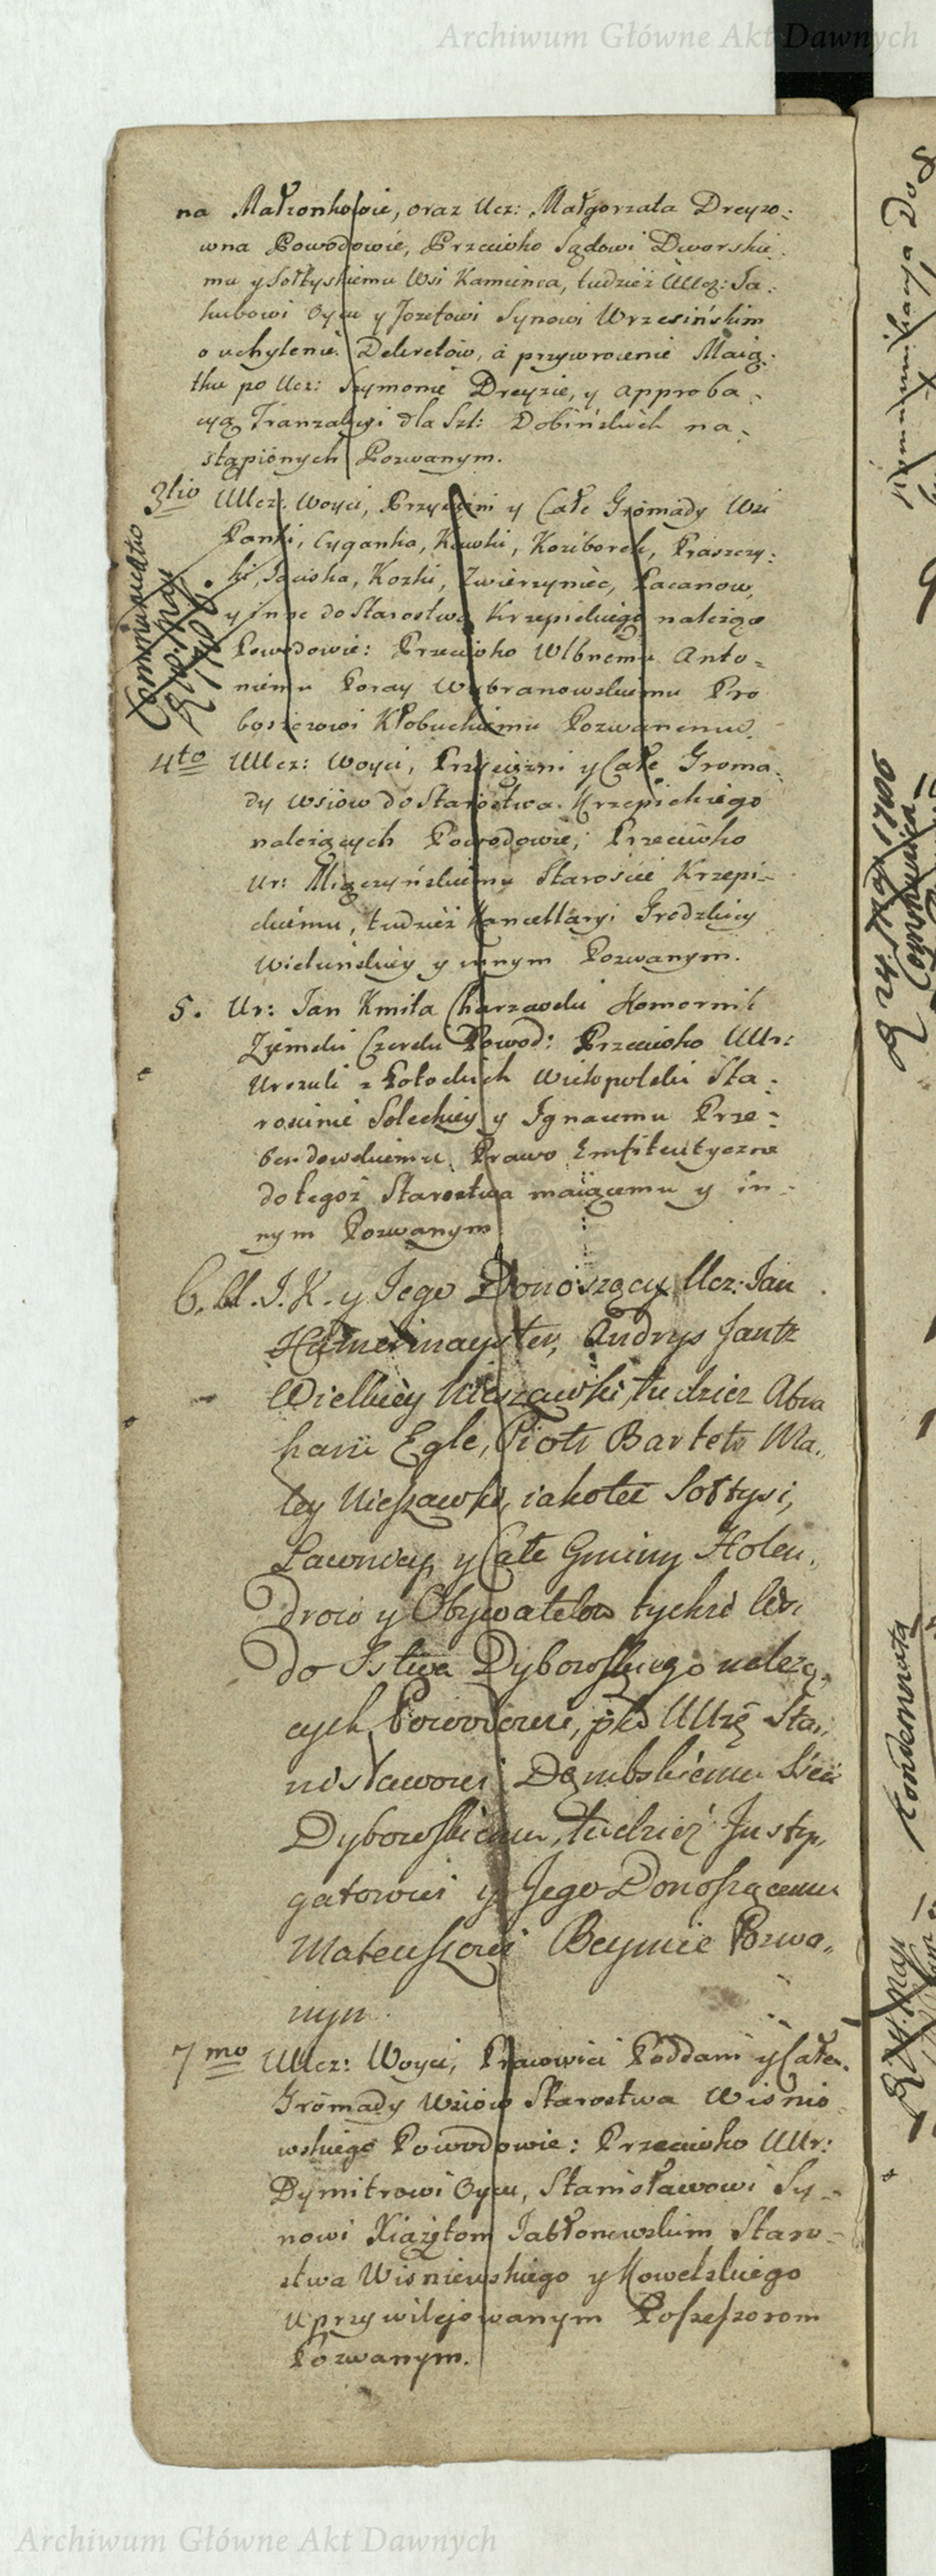 Archiwum Główne Akt Dawnych
na Małżonkowie, oraz Ucz: Małgorzata Dreyzo:
wna Powodowie, Przeciwko Sądowi Dworskie
mu y Sołtyskiemu Wsi Kamieńca, tudzież UUcz: Ja:
kubowi Oycu y Jozefowi Synowi Wrzesińskim
o uchylenie Dekretow, a przywrocenie Maią:
tku po Ucz: Szymonie Dreyzie, y approba:
cyą Tranzakcyi dla Szl: Dobińskich na:
stąpionych Pozwanym.
3tio UUcz: Woyci, Przysiężni y Całe Gromady Wsi
Panki, Cyganka, Kawki, Koziborek, Praszczy:
ki, Kozki, Zwierzyniec, Pacanow,
y inne do Starostwa Krzepickiego należące
Powodowie: Przeciwko Wlbnemu Anto=
niemu Poray Wybranowskiemu Pro
boszczowi Kłobuckiemu Pozwanemu.
4to UUcz: Woyci, Przysiężni y Całe Groma:
dy Wsiow do Starostwa Krzepickiego
należących Powodowie, Przeciwko
Ur: Miączyńskiemu Staroście Krzepi=
ckiemu, tudzież Kancellaryi Grodzkiey
Wieluńskiey y innym Pozwanym.
5. Ur: Jan Kmita Charzewski Komornik
Ziemski Czerski Powod: Przeciwko UUr:
Urszuli z Potockich Wielopolski Sta:
rościnie Soleckiey y Ignacemu Prze=
bendowskiemu Prawo Emfiteutyczne
do tegoż Starostwa maiącemu y in=
nym Pozwanym
6. U. I. K. y Jego Donoszący Ucz: Jan
Hamermayster, Andrys Jantz
Wielkiey Nieszawki, tudzież Abra
ham Egle, Piotr Bartels Ma,,
łey Nieszawki, iakoteż Sołtysi,
Ławnicy, y Całe Gminy Holen,,
drow y Obywatelow tychże Wsi
do Sstwa Dybowskiego należą,,
cych Powodowie, pko UUrż Sta,,
nisławowi Dąmbskiemu Sście
Dybowskiemu, tudzież Insty,,
gatorowi y Jego Donoszącemu
Mateuszowi Beymie Pozwa,,
nym.
7mo UUcz: Woyci, Pracowici Poddani y Całe
Gromady Wsiow Starostwa Wisnio
wskiego Powodowie: Przeciwko UUr:
Dymitrowi Oycu, Stanisławowi Sy=
nowi Xiążętom Jabłonowskim Staro=
stwa Wisniewskiego y Kowelskiego
uprzywilejowanym Poszeszorom
Pozwanym.
Communicatio
Kondemnata
Archiwum Główne Akt Dawnych